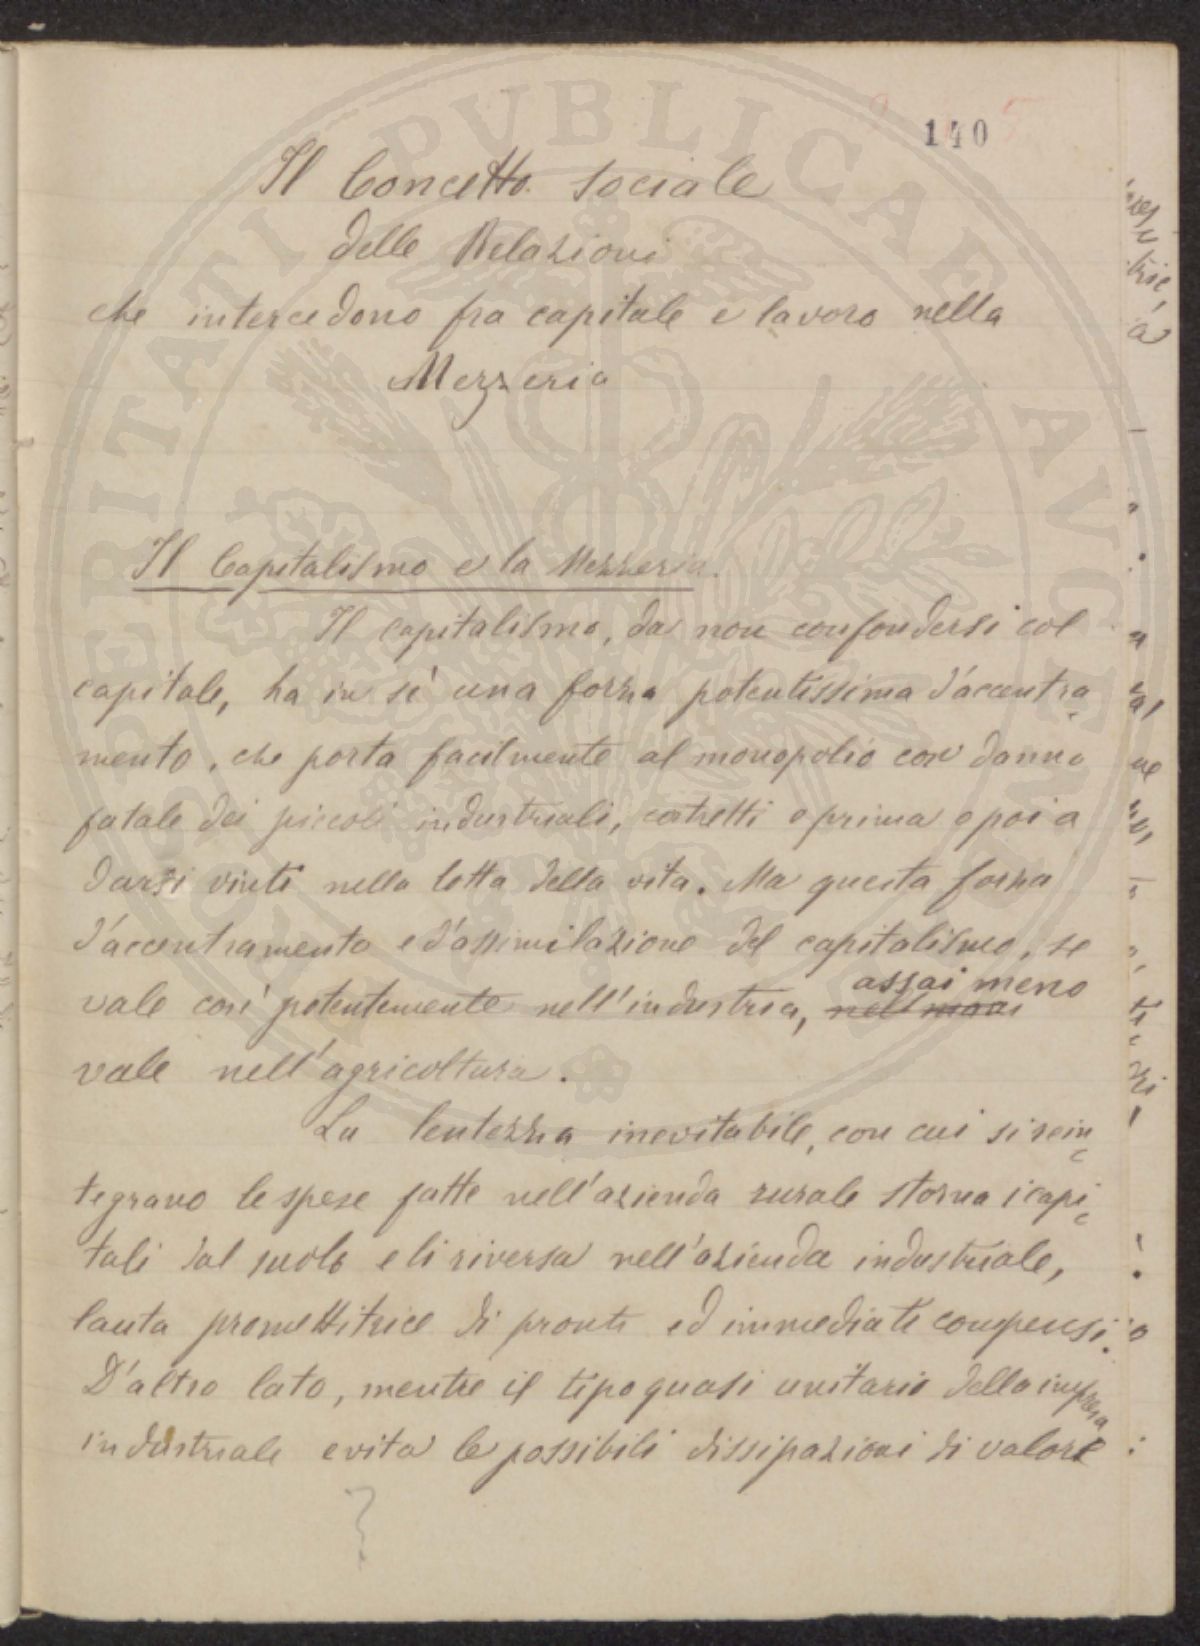 140
Il Concetto sociale
delle Relazioni
che intercedono fra capitale e lavoro nella
Mezzeria
Il Capitalismo e la Mezzeria.
Il capitalismo, da non confondersi col
capitale, ha in sè una forza potentissima d'accentra-
mento, che porta facilmente al monopolio con danno
fatale dei piccoli industriali, costretti o prima o poi a
darsi vinti nella lotta della vita. Ma questa forza
d'accentramento e d'assimilazione del capitalismo, se
assai meno
vale così potentemente nell'industria,
vale nell'agricoltura.
La lentezza inevitabile, con cui si rein-
tegrano le spese fatte nell'azienda rurale storna i capi-
tali dal suolo e li riversa nell'azienda industriale,
lauta promettitrice di pronti ed immediati compensi.
D'altro lato, mentre il tipo quasi unitario della impresa
industriale evita le possibili dissipazioni di valore
?